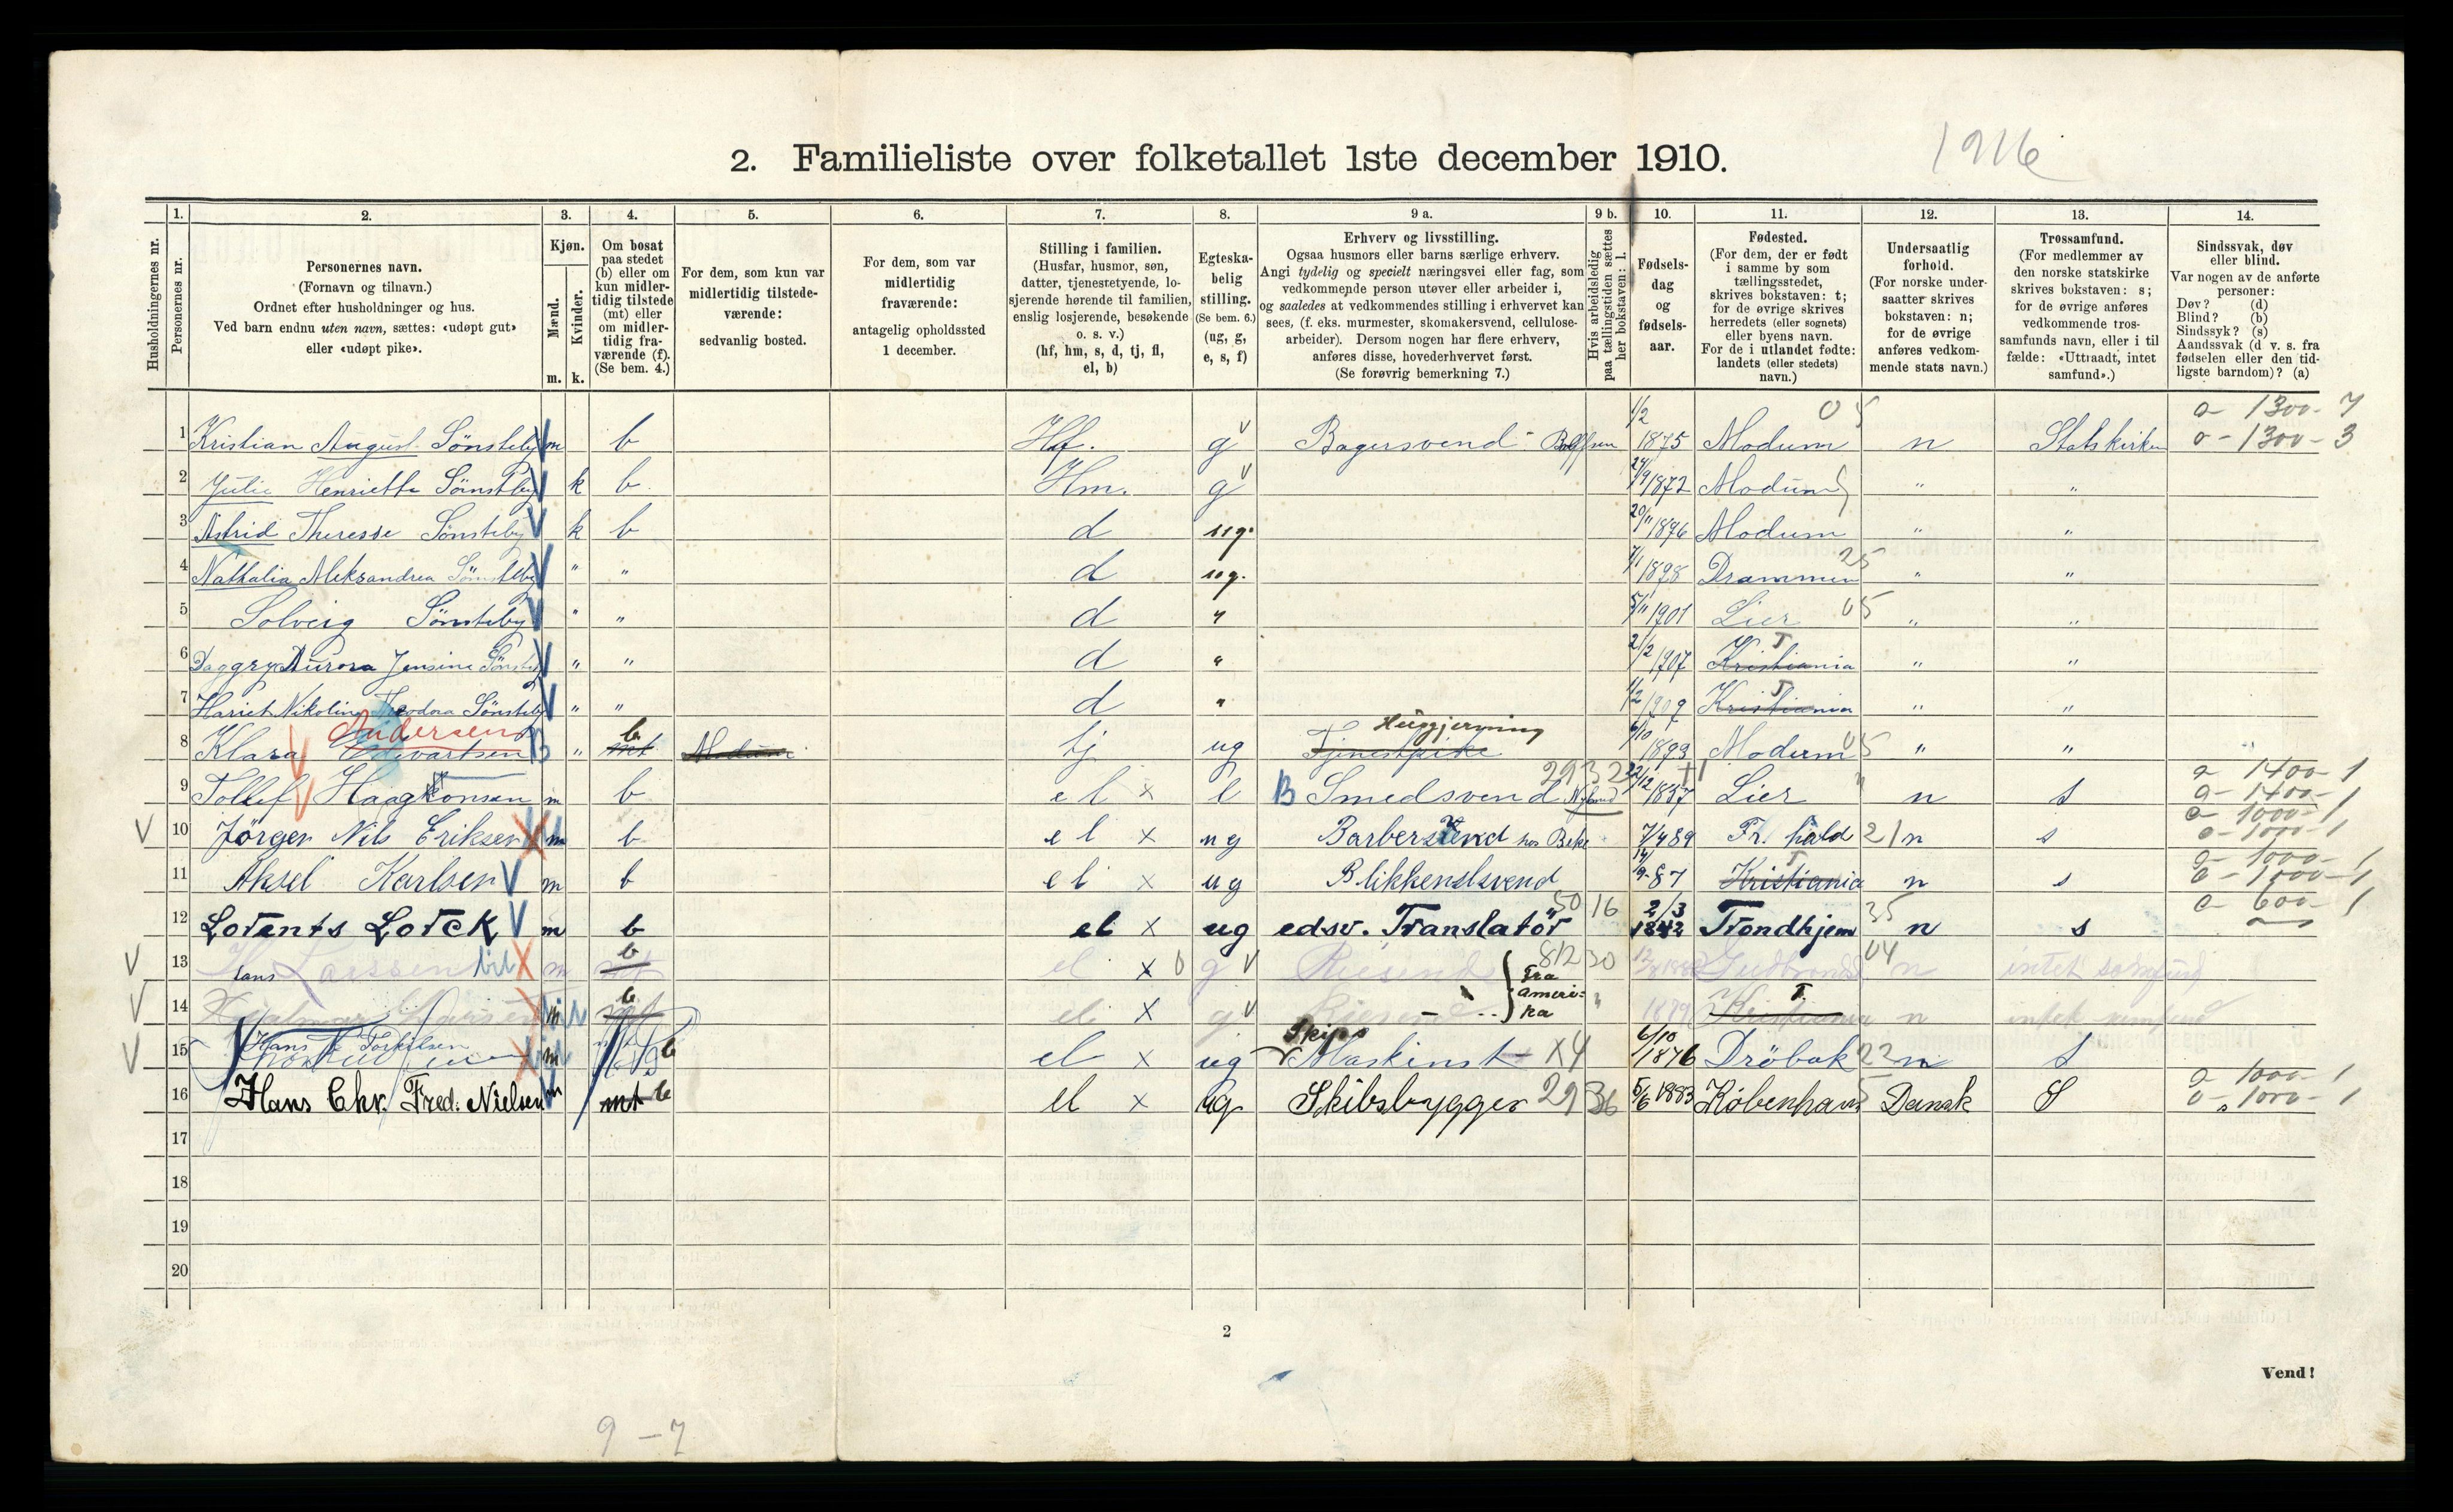 1916
2. Familieliste over folketallet 1ste december 1910.
Husholdningernes nr.
1. Personernes nr.
2. Personernes navn.
(Fornavn og tilnavn.)
Ordnet efter husholdninger og hus.
Ved barn endnu uten navn, sættes: «udøpt gut»
eller «udøpt pike».
3. Kjøn.
Mænd. m.
Kvinder. k.
4. Om bosat
paa stedet
(b) eller om
kun midler-
tidig tilstede
(mt) eller
om midler-
tidig fra-
værende (f).
(Se bem. 4.)
5. For dem, som kun var
midlertidig tilstede-
værende:
sedvanlig bosted.
6. For dem, som var
midlertidig
fraværende:
antagelig opholdssted
1 december.
7. Stilling i familien.
(Husfar, husmor, søn,
datter, tjenestetyende, lo-
sjerende hørende til familien,
enslig losjerende, besøkende
o. s. v.)
(hf, hm, s, d, tj, fl,
el, b)
8. Egteska-
belig
stilling.
(Se bem. 6.)
(ug, g,
e, s, f)
9 a. Erhverv og livsstilling.
Ogsaa husmors eller barns særlige erhverv.
Angi tydelig og specielt næringsvei eller fag, som
vedkommende person utøver eller arbeider i,
og saaledes at vedkommendes stilling i erhvervet kan
sees, (f. eks. murmester, skomakersvend, cellulose-
arbeider). Dersom nogen har flere erhverv,
anføres disse, hovederhvervet først.
(Se forøvrig bemerkning 7.)
9 b. Hvis arbeidsledig
paa tællingstiden sættes
her bokstaven: l.
10. Fødsels-
dag
og
fødsels-
aar.
11. Fødested.
(For dem, der er født
i samme by som
tællingsstedet,
skrives bokstaven: t;
for de øvrige skrives
herredets (eller sognets)
eller byens navn.
For de i utlandet fødte:
landets (eller stedets)
navn.)
12. Undersaatlig
forhold.
(For norske under-
saatter skrives
bokstaven: n;
for de øvrige
anføres vedkom-
mende stats navn.)
13. Trossamfund.
(For medlemmer av
den norske statskirke
skrives bokstaven: s;
for de øvrige anføres
vedkommende tros-
samfunds navn, eller i til
fælde: «Uttraadt, intet
samfund».)
14. Sindssvak, døv
eller blind.
Var nogen av de anførte
personer:
Døv? (d)
Blind? (b)
Sindssyk? (s)
Aandssvak (d v. s. fra
fødselen eller den tid-
ligste barndom)? (a)
1 Kristian August Sønsteby m b Hf. g Bagersvend 1/2 1875 Modum 05 n Statskirken 1300-7 1300-3
2 Julie Henriette Sønsteby k b. Hm. g 24/9 1872 Modum " "
3 Astrid Theresse Sønsteby k b d ug. 20/11 1896 Modum " "
4 Nathalia Aleksandrea Sønsteby " " d ug. 7/1 1898 Drammen 25 " "
5 Solveig Sønsteby " " d " 5/11 1901 Lier 05 " "
6 Daggry Aurora Jensine Sønsteby " " d " 21/2 1907 Kristiania T " "
7 Hariet Nikoline Theodora Sønsteby " " d " 1/2 1909 Kristiania T " "
8 Klara Edvartsen Andersen " mt b Modum tj ug Tjenestpike Husgjerning 6/10 1893 Modum 05 " "
9 Tollef Haagkonsen m b el x e B Smedsvend Nyland 2932 22/12 1837 Lier " n s 1400-1 1400-1
10 Jörgen Nils Eriksen m b el x ug Barbersvend hos Beke 7/4 89 Fr. hald 21 n s 1000-1 1000-1
11 Aksel Karlsen m b el x ug Blikkenslsvend 14/9-87 Kristiania T n s 1000-1 1000-1
12 Lorents Lorck m b el x ug edsv. Translatör 50 16 2/3 1842 Trondhjem 35 n s 600-1
13 Hans Larssen m b el x g Reisende 812 30 04 n intet samfund
fra
ameri-
ka
14 Hjalmar Larsen m mt b el x g Reisende 1879 Kristiania T. n intet samfund
15 Hans Torkilsen m b el x ug Skips Maskinst X4 6/10 1876 Dröbak 22 n s
16 Hans Chr. Fred: Nielsen m mt b el x ug Skibsbygger 29 36 5/6 1883 København 5 Dansk S 1000-1 1000-1
17
18
19
20
2
Vend!
9-7